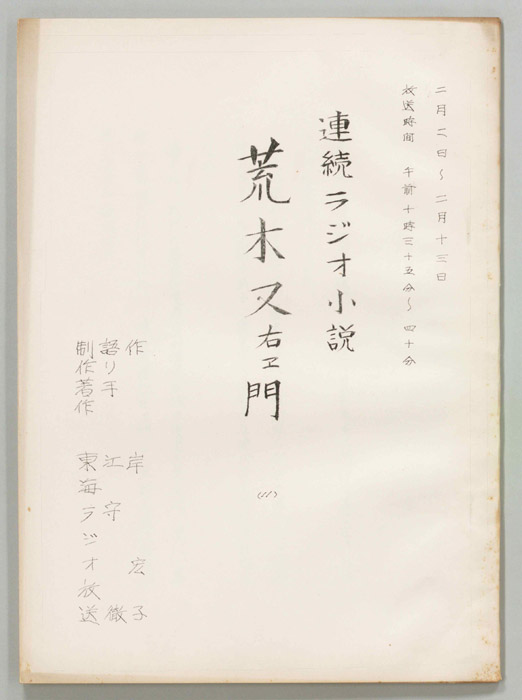 二月二日～二月十三日
放送時間 午前十時三十五分～四十分
連続ラジオ小説
荒木又右ヱ門
(11)
作 岸宏子
語り手 江守徹
制作著作 東海ラジオ放送